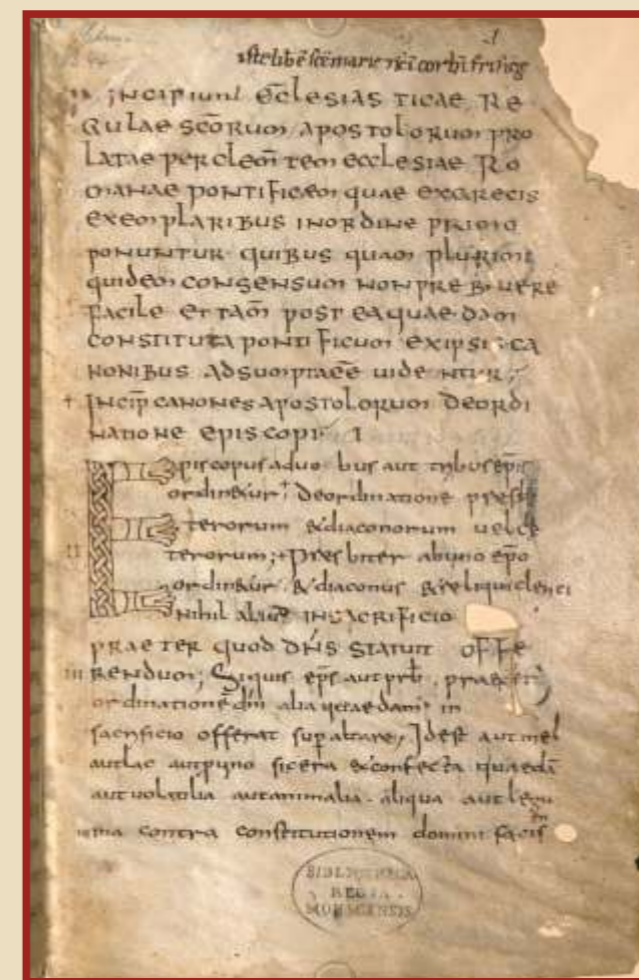 iste lib̄ ē sc̄e marie et sc̄i corb̄i frisīg
INCIPIUNT ECCLESIASTICAE RE
GULAE SCŌRUM APOSTOLORUM PRO
LATAE PER CLEM̄TEM ECCLESIAE RO
MANAE PONTIFICEM QUAE EXGRECIS
EXEMPLARIBUS INORDINE PRIMO
PONUNTUR QUIBUS QUAM PLURIMI
QUIDEM CONSENSUM NON PREBUERE
FACILE ET TAM̄ POST EA QUAEDAM
CONSTITUTA PONTIFICUM EX IPSIS CA
NONIBUS ADSUMPTA EĒ UIDENTUR;
† INCIP̄ CANONES APOSTOLORUM DE ORDI
NATIONE EPISCOPI I
Episcopus a duobus aut tribus ep̄is
ordinetur; De ordinatione presbi
II terorum & diaconorum uel ce
terorum; Presbiter ab uno ep̄o
ordinetur & diaconus & reliqui clerici
nihil aliud IN SACRIFICIO
PRAETER QUOD DN̄S STATUIT OFFE
III RENDUM; Siquis ep̄s aut prb̄ praeter
ordinationē dn̄i alia quaedam in
sacrificio offerat sup altare, Id est aut mel
aut lac aut pro uino sicera & confecta quaedā
aut uolatilia aut animalia aliqua aut legu
mina contra constitutionem domini faciēn
BIBLIOTHECA
REGIA
MONACENSIS